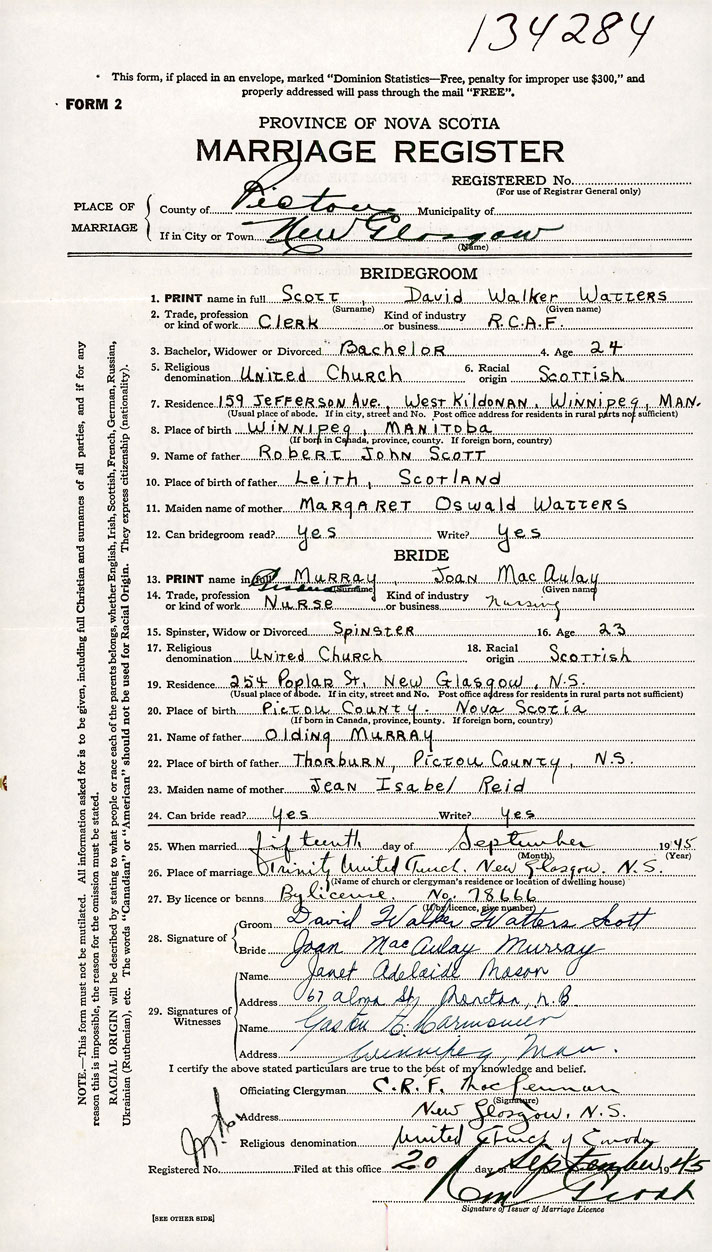 134284
· This form, if placed in an envelope, marked "Dominion Statistics—Free, penalty for improper use $300," and
properly addressed will pass through the mail "FREE".
FORM 2
PROVINCE OF NOVA SCOTIA
MARRIAGE REGISTER
REGISTERED No.
(For use of Registrar General only)
PLACE OF MARRIAGE
County of Pictou Municipality of
If in City or Town New Glasgow
(Name)
BRIDEGROOM
1. PRINT name in full Scott, David Walker Watters
(Surname) (Given name)
2. Trade, profession or kind of work Clerk Kind of industry or business R.C.A.F.
3. Bachelor, Widower or Divorced Bachelor 4. Age 24
5. Religious denomination United Church 6. Racial origin Scottish
7. Residence 159 Jefferson Ave., West Kildonan, Winnipeg, Man.
(Usual place of abode. If in city, street and No. Post office address for residents in rural parts not sufficient)
8. Place of birth Winnipeg, Manitoba
(If born in Canada, province, county. If foreign born, country)
9. Name of father Robert John Scott
10. Place of birth of father Leith, Scotland
11. Maiden name of mother Margaret Oswald Watters
12. Can bridegroom read? yes Write? yes
BRIDE
13. PRINT name in full Murray, Joan MacAulay
(Surname) (Given name)
14. Trade, profession or kind of work Nurse Kind of industry or business nursing
15. Spinster, Widow or Divorced Spinster 16. Age 23
17. Religious denomination United Church 18. Racial origin Scottish
19. Residence 254 Poplar St, New Glasgow, N.S.
(Usual place of abode. If in city, street and No. Post office address for residents in rural parts not sufficient)
20. Place of birth Pictou County. Nova Scotia
(If born in Canada, province, county. If foreign born, country)
21. Name of father Olding Murray
22. Place of birth of father Thorburn, Pictou County, N.S.
23. Maiden name of mother Jean Isabel Reid
24. Can bride read? yes Write? yes
25. When married fifteenth day of September 1945
(Month) (Year)
26. Place of marriage Trinity United New Glasgow. N.S.
(Name of church or clergyman's residence or location of dwelling house)
27. By licence or banns By license. No. 78666
(If by licence, give number)
28. Signature of
Groom David Walker Watters Scott
Bride Joan MacAulay Murray
29. Signatures of Witnesses
Name Janet Adelaide Mason
Address 67 Alma St, Moncton, N.B.
Name Gaston
Address Winnipeg, Man.
I certify the above stated particulars are true to the best of my knowledge and belief.
Officiating Clergyman C.R.F. MacLennan
(Signature)
Address New Glasgow, N.S.
Religious denomination United Church of Canada
Registered No. Filed at this office 20 day of September 1945
Signature of Issuer of Marriage Licence
[SEE OTHER SIDE]
NOTE.—This form must not be mutilated. All information asked for is to be given, including full Christian and surnames of all parties, and if for any
reason this is impossible, the reason for the omission must be stated.
RACIAL ORIGIN will be described by stating to what people or race each of the parents belongs, whether English, Irish, Scottish, French, German, Russian,
Ukrainian (Ruthenian), etc. The words "Canadian" or "American" should not be used for Racial Origin. They express citizenship (nationality).